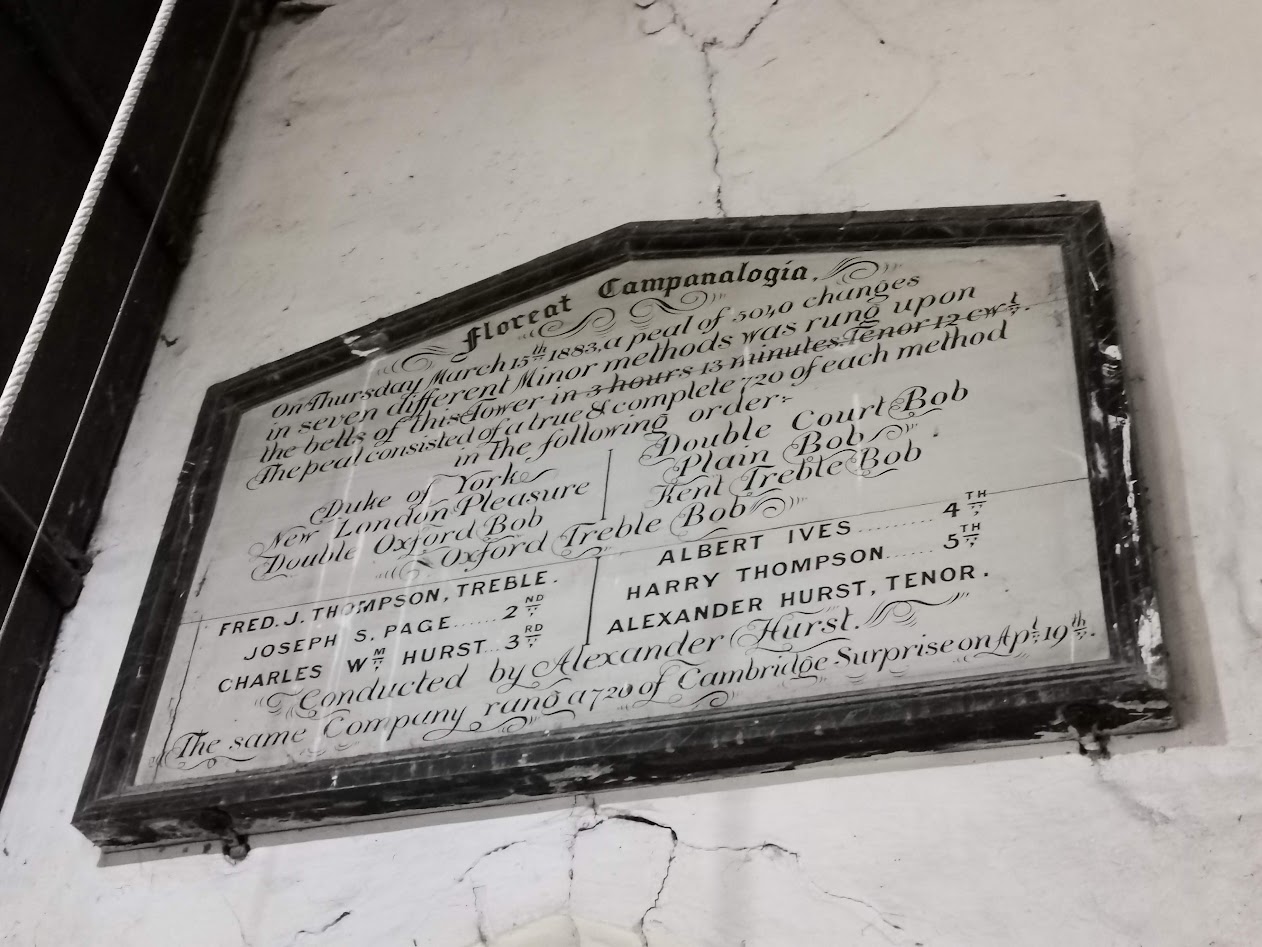 Floreat Campanalogia.
On Thursday March 15th 1883, a peal of 5040 changes
in seven different Minor methods was rung upon
the bells of this Tower in 3 hours 13 minutes. Tenor 12 cwt.
The peal consisted of a true & complete 720 of each method
in the following order:-
Duke of York
New London Pleasure
Double Oxford Bob
Double Court Bob
Plain Bob
Kent Treble Bob
& Oxford Treble Bob
FRED. J. THOMPSON, TREBLE.
JOSEPH S. PAGE...... 2ND
CHARLES WM HURST... 3RD
ALBERT IVES......... 4TH
HARRY THOMPSON...... 5TH
ALEXANDER HURST, TENOR.
Conducted by Alexander Hurst.
The same Company rang a 720 of Cambridge Surprise on Apl 19th.